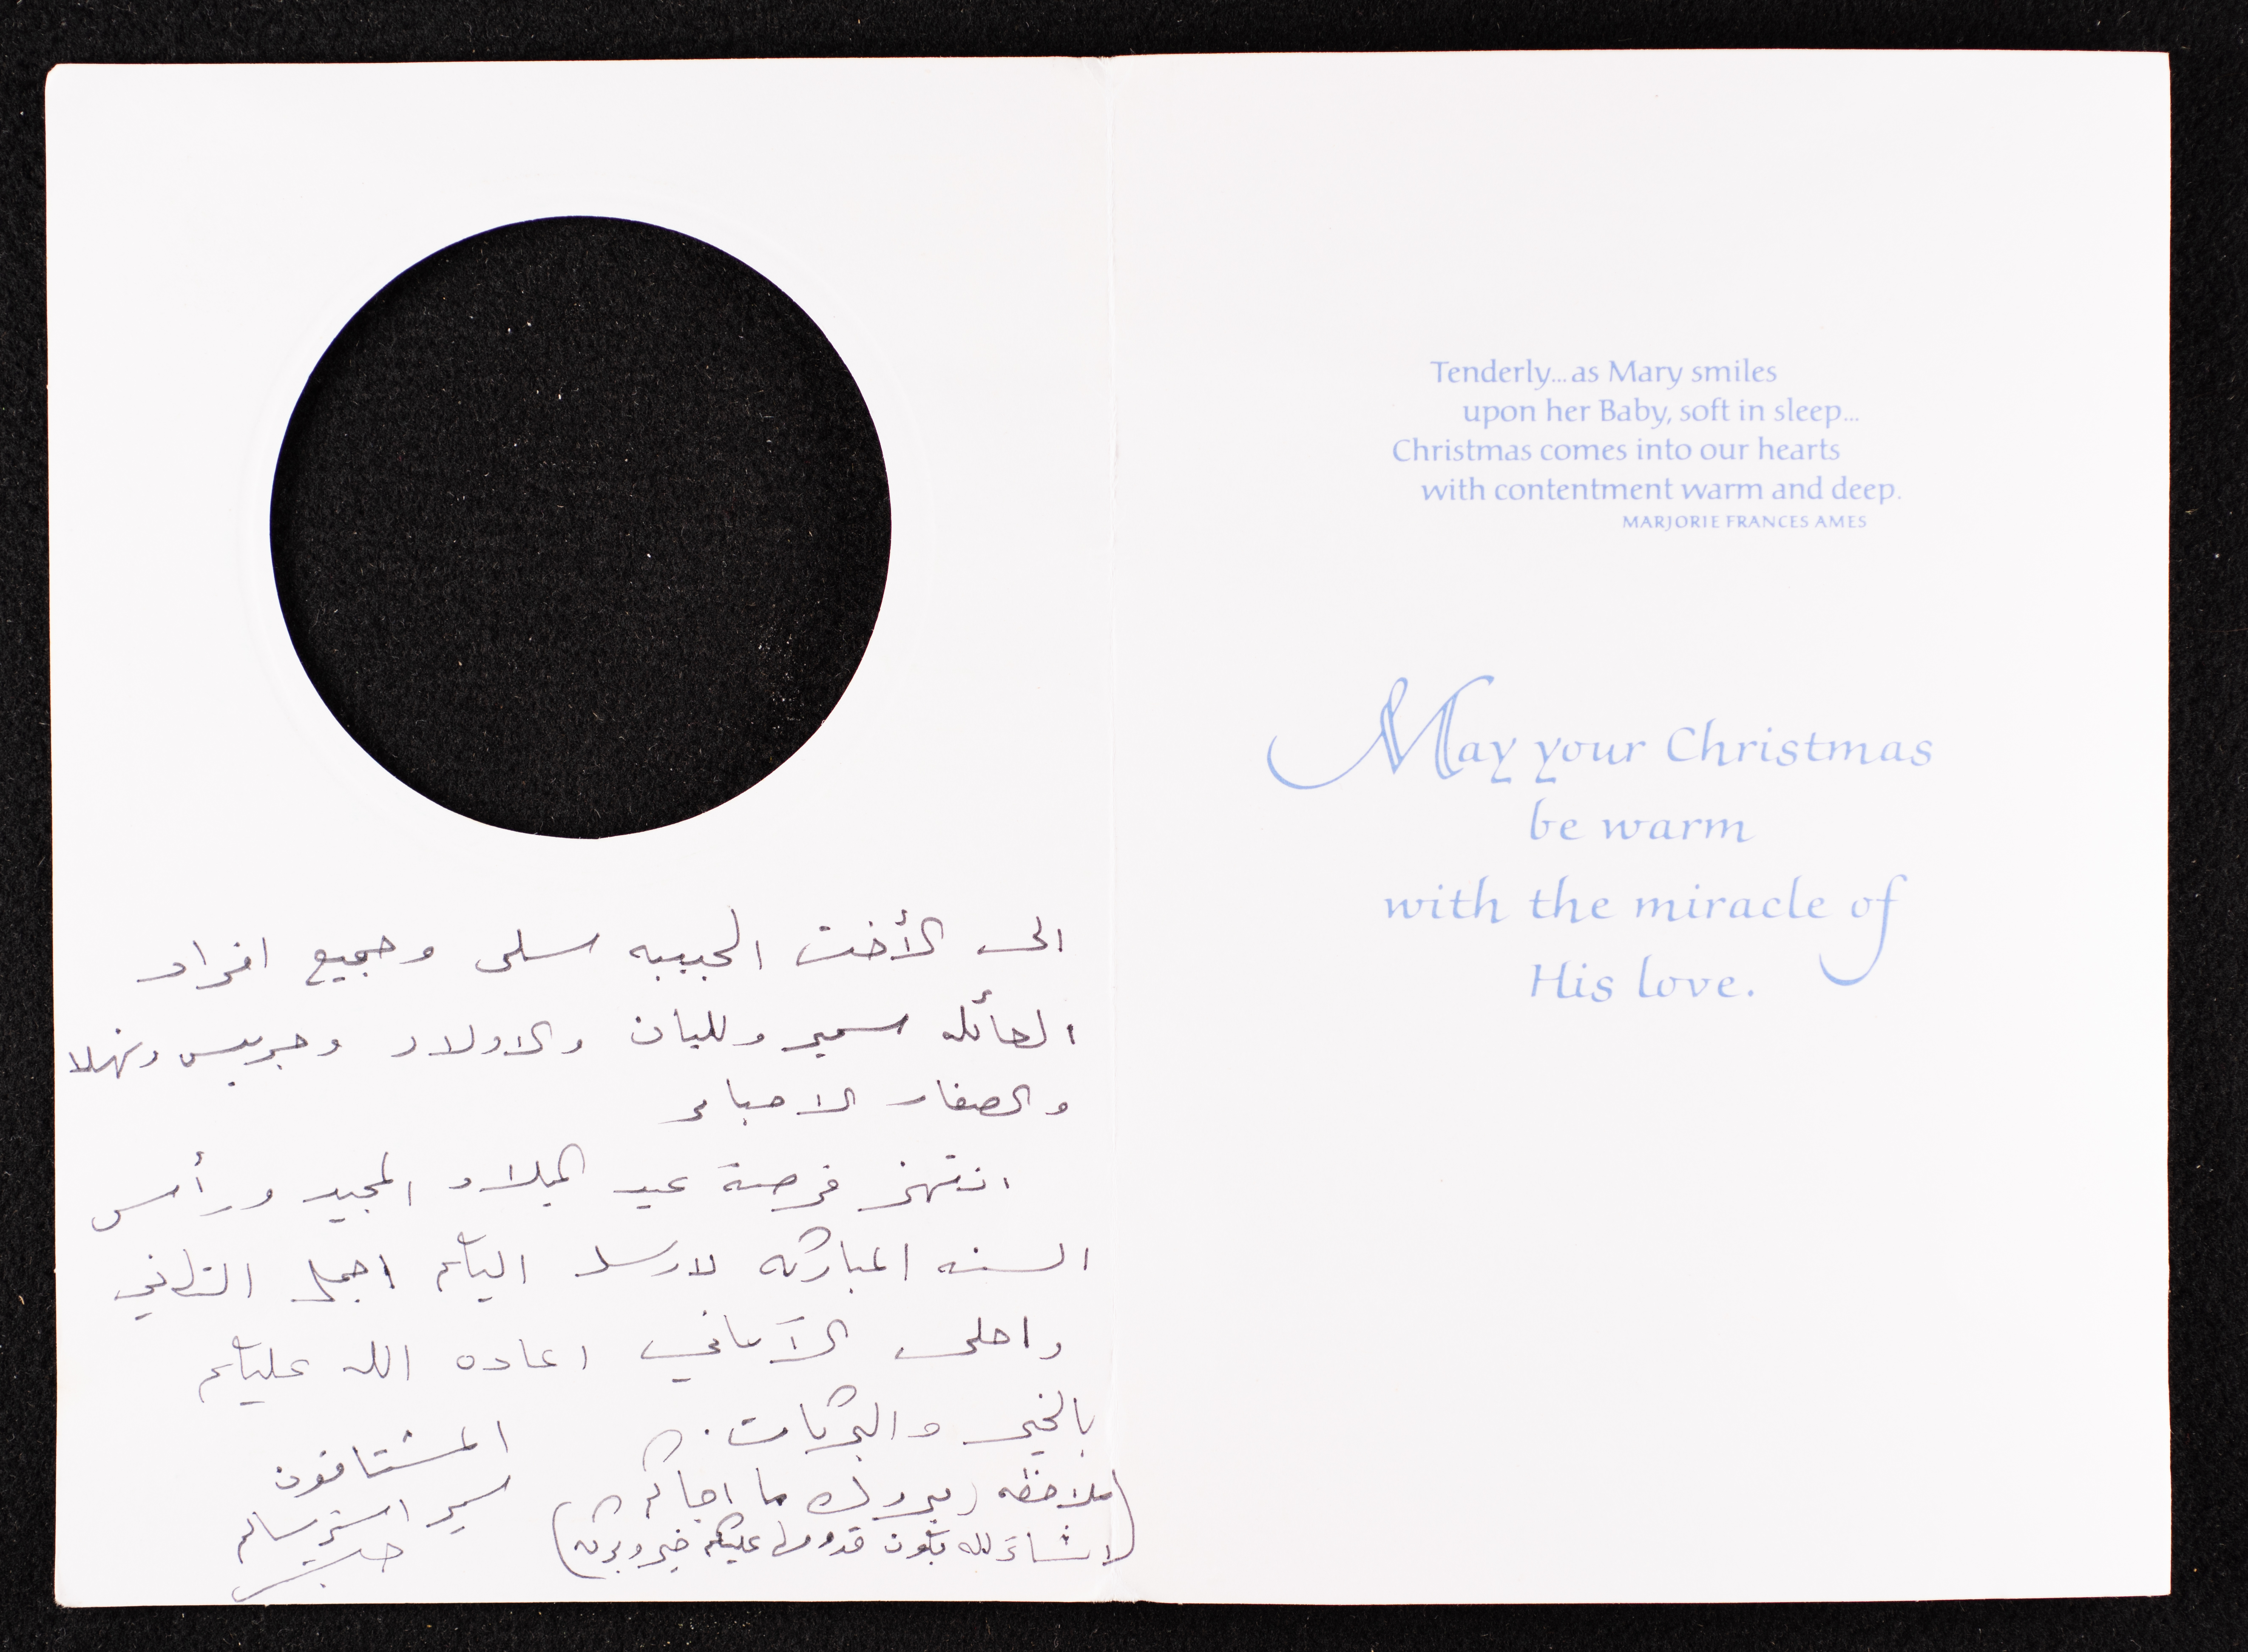 الى الأخت الحبيبه سلمى وجميع افراد
العائله سمير وليليان والاولاد وجريس ونهلا
والصغار الاحباء
انتهز فرصة عيد الميلاد المجيد ورأس
السنه المباركه لارسل اليكم اجمل التهاني
واحلى الآماني اعاده الله عليكم
بالخير والبركات.
المشتاقون
سمير استر سالم
(ملاحظه مبروك ما اجاكم
انشاء الله تكون قدومها عليكم خير وبركه)
Tenderly...as Mary smiles
upon her Baby, soft in sleep...
Christmas comes into our hearts
with contentment warm and deep.
MARJORIE FRANCES AMES
May your Christmas
be warm
with the miracle of
His love.